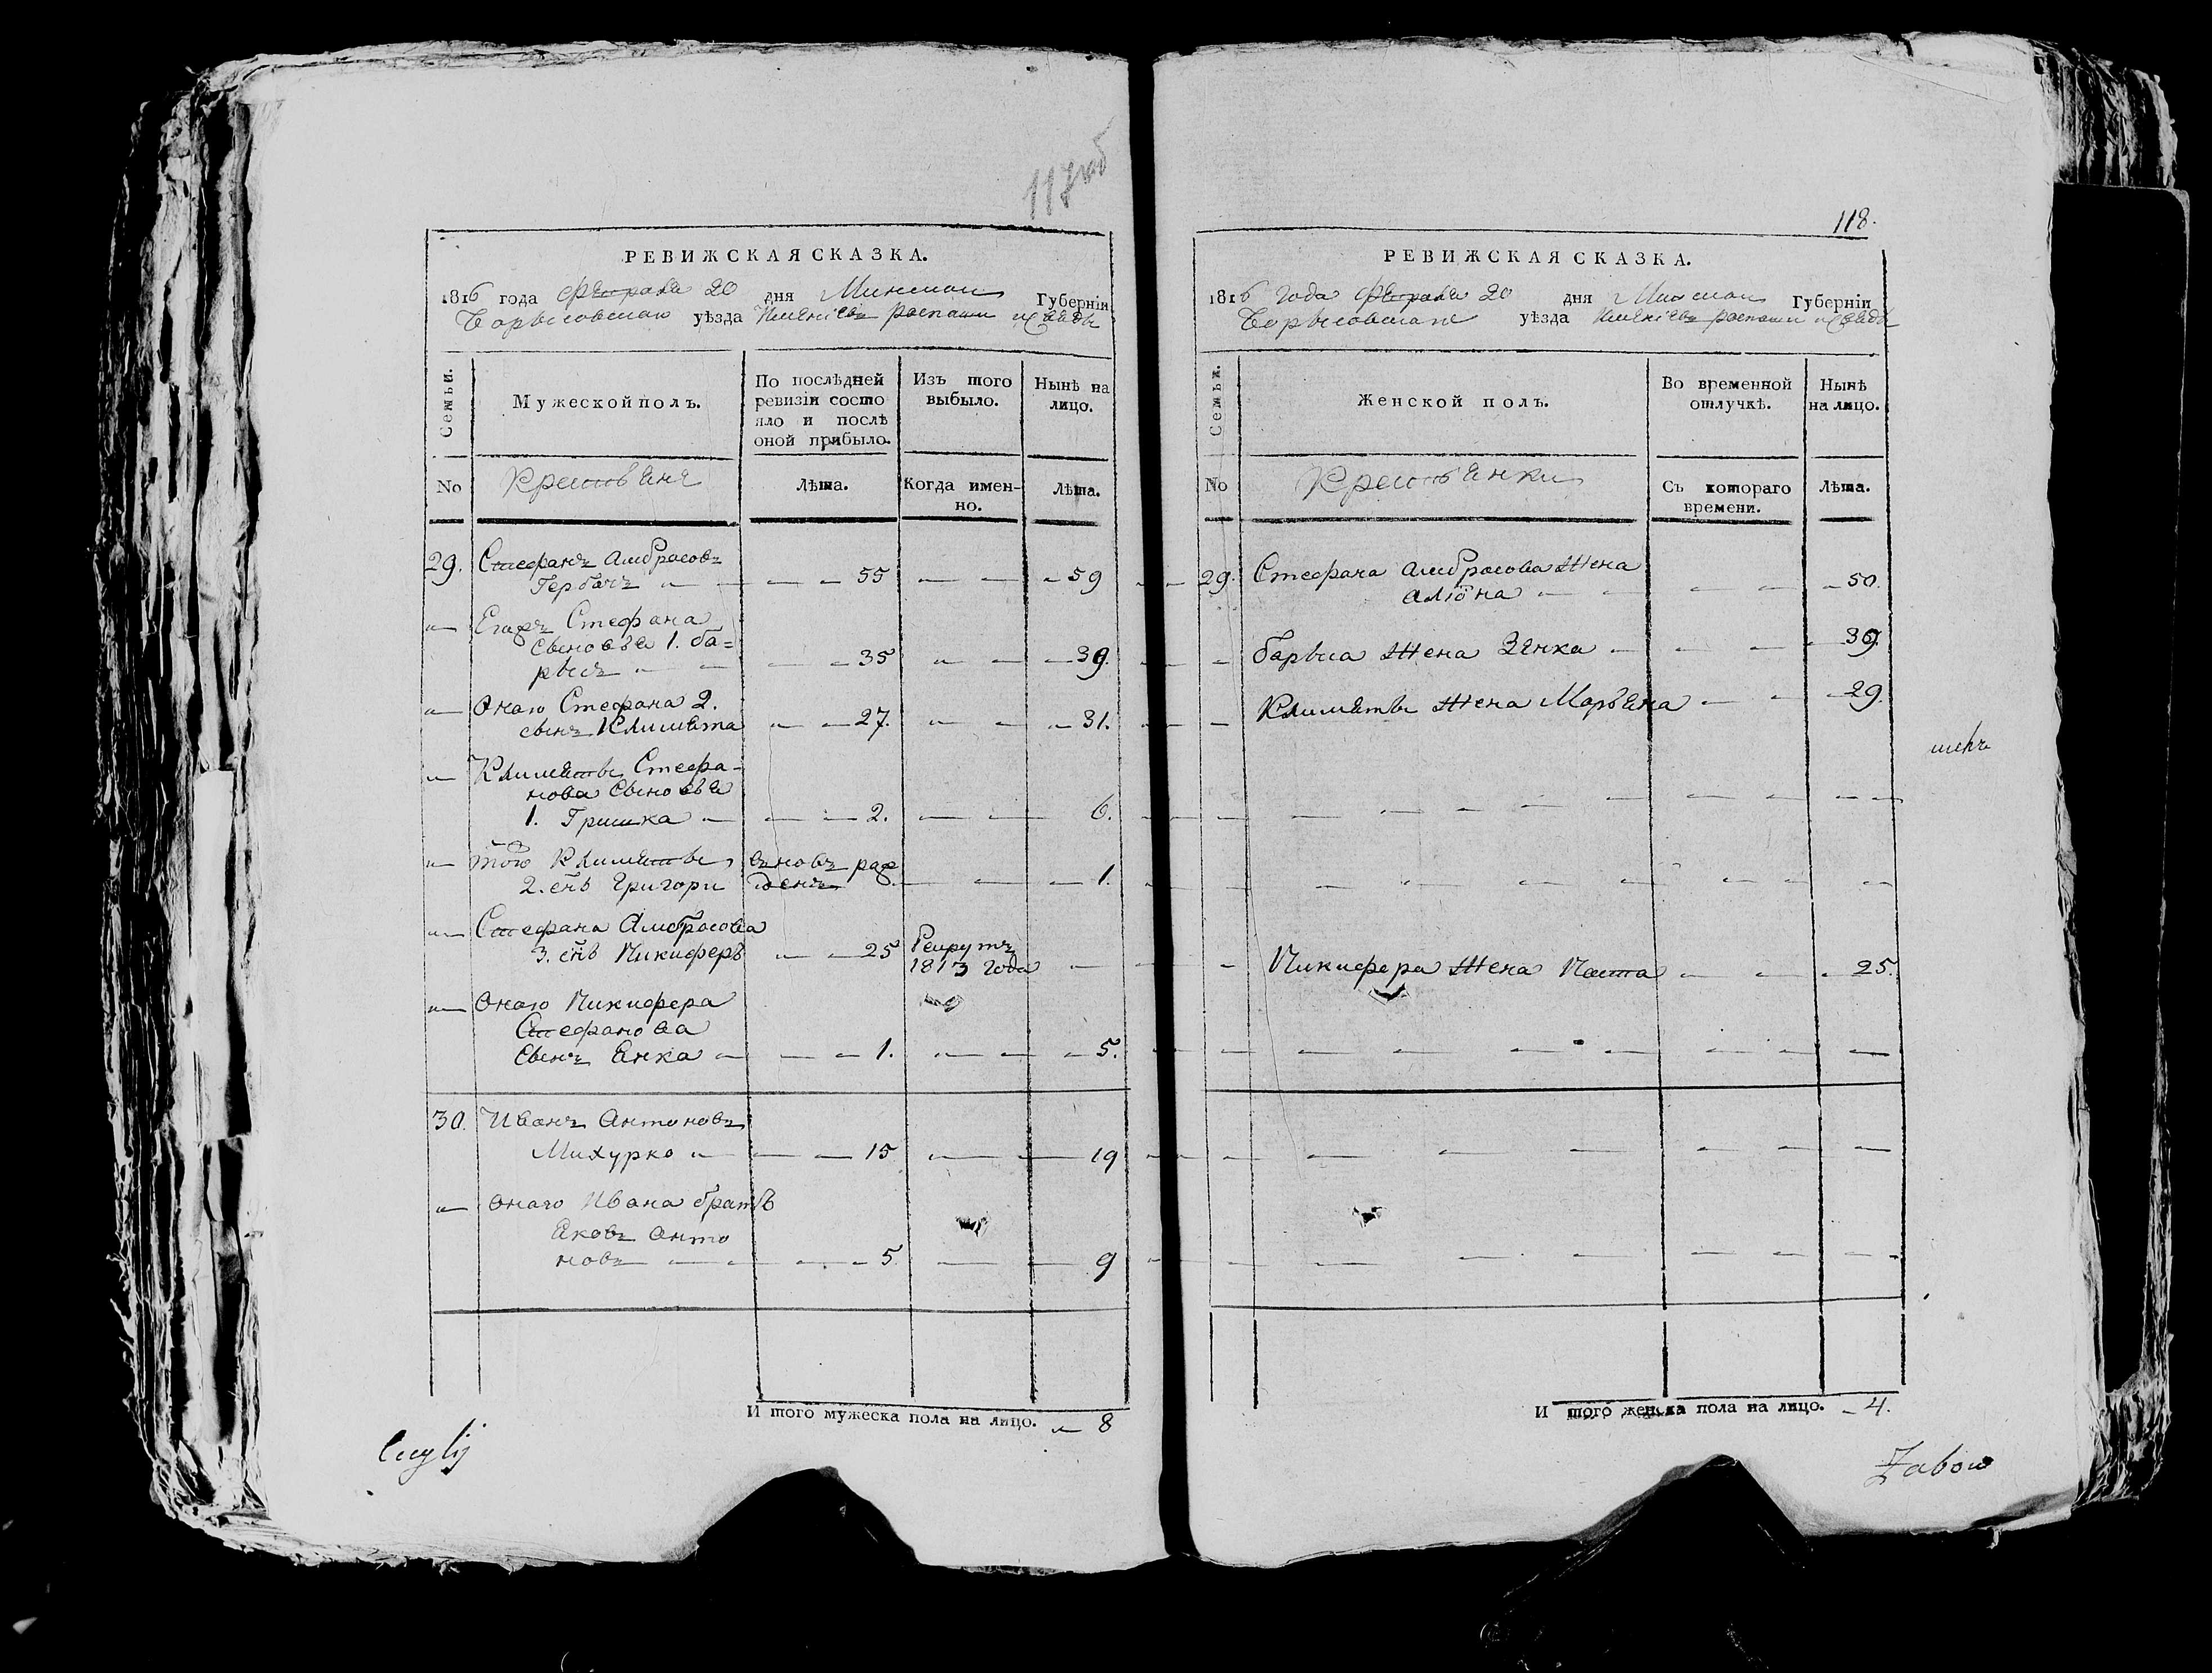 117об
РЕВИЖСКАЯ СКАЗКА.
1816 года февраля 20 дня Минской Губерніи
Борысовскаго уѣзда
Семьи.
Мужеской полъ.
По послѣдней
ревизіи состо
яло и послѣ
оной прибыло.
Изъ того
выбыло.
Нынѣ на
лицо.
No
Крестьяне
Лѣта.
Когда имен-
но.
Лѣта.
29. Стефанъ Амбросовъ
Гербачъ 55 59
Стефана
сыновья 1. ба=
рысъ 35 39.
Оного Стефана 2.
сынъ Климята 27. 31.
Климяты Стефа-
нова сыновья
1. Гришка 2. 6.
того Климяты вновь рож
2. снъ Григори денъ 1.
Стефана Амбросова Рекрутъ
3. снъ Никиферъ 25 1813 года
Оного Никифера
Стефанова
сынъ Янка 1. 5.
30. Иванъ Антоновъ
Михурко 15 19
оного Ивана братъ
Яковъ Анто
новъ 5 9
И того мужеска пола на лицо. 8
118.
РЕВИЖСКАЯ СКАЗКА.
1816 года февраля 20 дня Минской Губерніи
уѣзда
Семьи.
Женской полъ.
Во временной
отлучкѣ.
Нынѣ
на лицо.
No
Крестьянки
Съ котораго
времени.
Лѣта.
29. Стефана Амбросова жена
Алiона 50.
барыса жена Зенка 39.
Климяты жена Марьяна 29.
Никифера жена Наста 25.
И того женска пола на лицо. 4.
Żabow